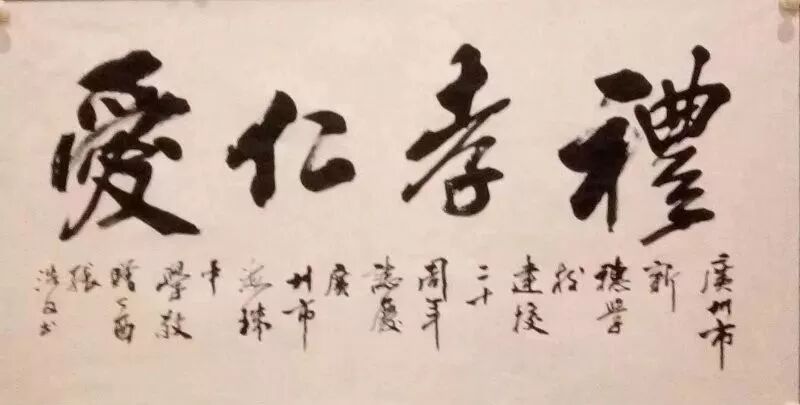 禮孝仁愛
廣州市
新
穗學
校
建校
二十
周年
誌慶
廣
州市
海珠
中
學敬
贈
酉
張
浩
书